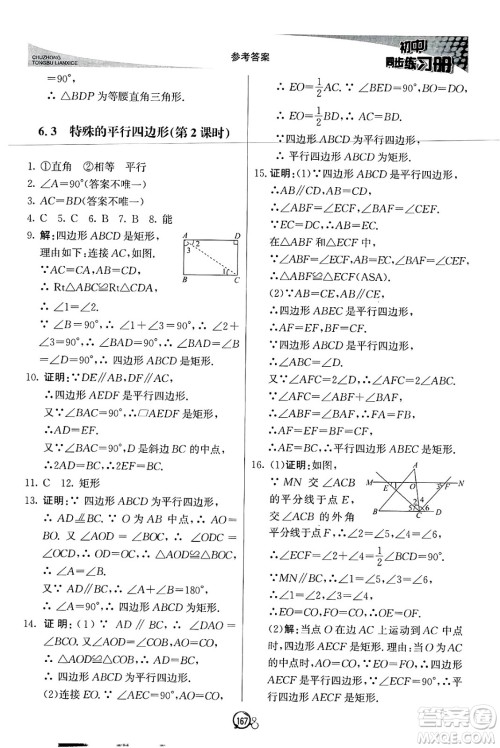 CHUZHONG
TONGBU LIANXICE
参考答案
初中
同步练习册
=90°,
∴ △BDP 为等腰直角三角形.
6.3 特殊的平行四边形(第2课时)
1. ①直角 ②相等 平行
2. ∠A=90°(答案不唯一)
3. AC=BD(答案不唯一)
4. C 5. C 6. B 7. B 8. 能
9. 解:四边形 ABCD 是矩形,
理由如下,连接 AC,如图.
∵AC=CA,AB=CD,
∴ Rt△ABC≌Rt△CDA,
∴ ∠1=∠2.
∵ ∠2+∠3=90°,∴ ∠1+∠3=90°,
∵ ∠B=∠D=90°,∴ 四边形 ABCD 是矩形.
10. 证明:∵DE∥AB,DF∥AC,
∴四边形 AEDF 是平行四边形.
又∵∠BAC=90°,∴▱AEDF 是矩形,
∴AD=EF.
又∵∠BAC=90°,D 是斜边 BC 的中点,
∴AD=BD=DC,∴EF=BD.
11. C 12. 矩形
13. 证明:∵四边形 ABCD 为平行四边形,
∴AD∥BC. ∵O 为AB 的中点,∴OA=
OB. 又∵∠AOD=∠BOC,∴△AOD≌
△BOC. ∴∠A=∠B.
又∵AD∥BC,∴∠A+∠B=180°,
∴∠A=∠B=90°,∴四边形 ABCD 为矩形.
14. 证明:(1)∵ AD∥BC,∴ ∠DAO =
∠BCO. 又∵ AO=CO,∠AOD=
∠COB,∴ △AOD≌△COB,∴ AD=
BC.又∵AD∥BC,∴四边形 ABCD 是
平行四边形.
(2)连接 OE,∵ ∠BED=90°,∠AEC=
90°,点 O 分别为 AC,BD 的中点,
∴ EO=1/2BD,EO=1/2AC. ∴ AC=BD.
∵ 四边形 ABCD 是平行四边形,
∴ 四边形 ABCD 是矩形.
15. 证明:(1)∵四边形 ABCD 是平行四边形,
∴AB∥CD,AB=CD,
∴ ∠ABF=∠ECF. ∵EC=DC,∴AB=EC.
∵ ∠ABF=∠ECF,∠BAF=∠CEF.
在△ABF 和△ECF 中,
∴ △ABF≌△ECF(ASA).
(2)∵AB=EC,AB∥EC,
∴ 四边形 ABEC 是平行四边形,
∴ AF=EF,BF=CF.
∵ 四边形 ABCD 是平行四边形,
∴ ∠ABC=∠D.
又∵∠AFC=2∠D,∴∠AFC=2∠ABC.
∵∠AFC=∠ABF+∠BAF,
∴∠ABF=∠BAF. ∴ FA=FB.
∴ FA=FE=FB=FC,
∴ AE=BC. ∴ 四边形 ABEC 是矩形.
16. (1)证明:如图,
∵ MN 交∠ACB
的平分线于点 E,
交∠ACB 的外角
平分线于点F,
∴∠2=∠5,∠4=∠6,
∵MN∥BC,∴∠1=∠5,∠3=∠6,
∴∠1=∠2,∠3=∠4.∴EO=CO,
FO=CO. ∴OE=OF.
(2)解:当点 O 在边 AC 上运动到 AC 中
点时,四边形 AECF 是矩形. 当 O 为AC
的中点时,AO=CO,∵ EO=FO,
∴ 四边形 AECF 是平行四边形.
∵ ∠ECF=90°,
∴ 平行四边形 AECF 是矩形.
167